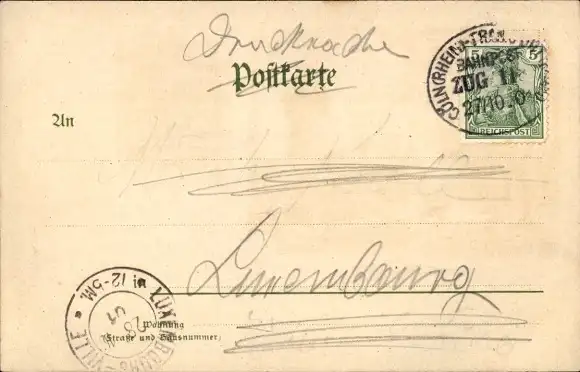 Drucksache
Postkarte
CÖLN (RHEIN)
BAHNPOST
ZUG 11
27/10.0
5
REICHSPOST
An
Luxembourg
12-5M.
LUXEMBOURG-VILLE
28
01
in
Wohnung
(Straße und Hausnummer)